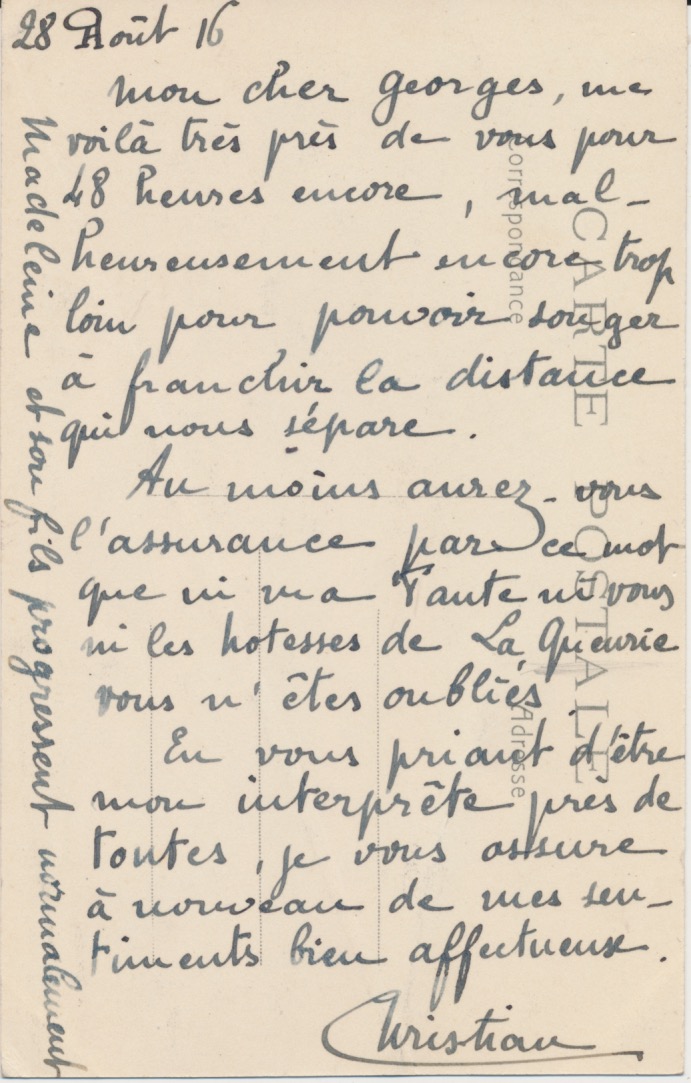 28 Août 16
Mon cher Georges, me
voilà très près de vous pour
48 heures encore, mal-
heureusement encore trop
loin pour pouvoir songer
à franchir la distance
qui nous sépare.
Au moins aurez-vous
l'assurance par ce mot
que ni ma Tante ni vous
ni les hotesses de La Queurie
vous n'êtes oubliés.
En vous priant d'être
mon interprête près de
toutes, je vous assure
à nouveau de mes sen-
timents bien affectueux.
Christian
Madeleine et son fils progressent normalement
CARTE POSTALE
Correspondance
Adresse